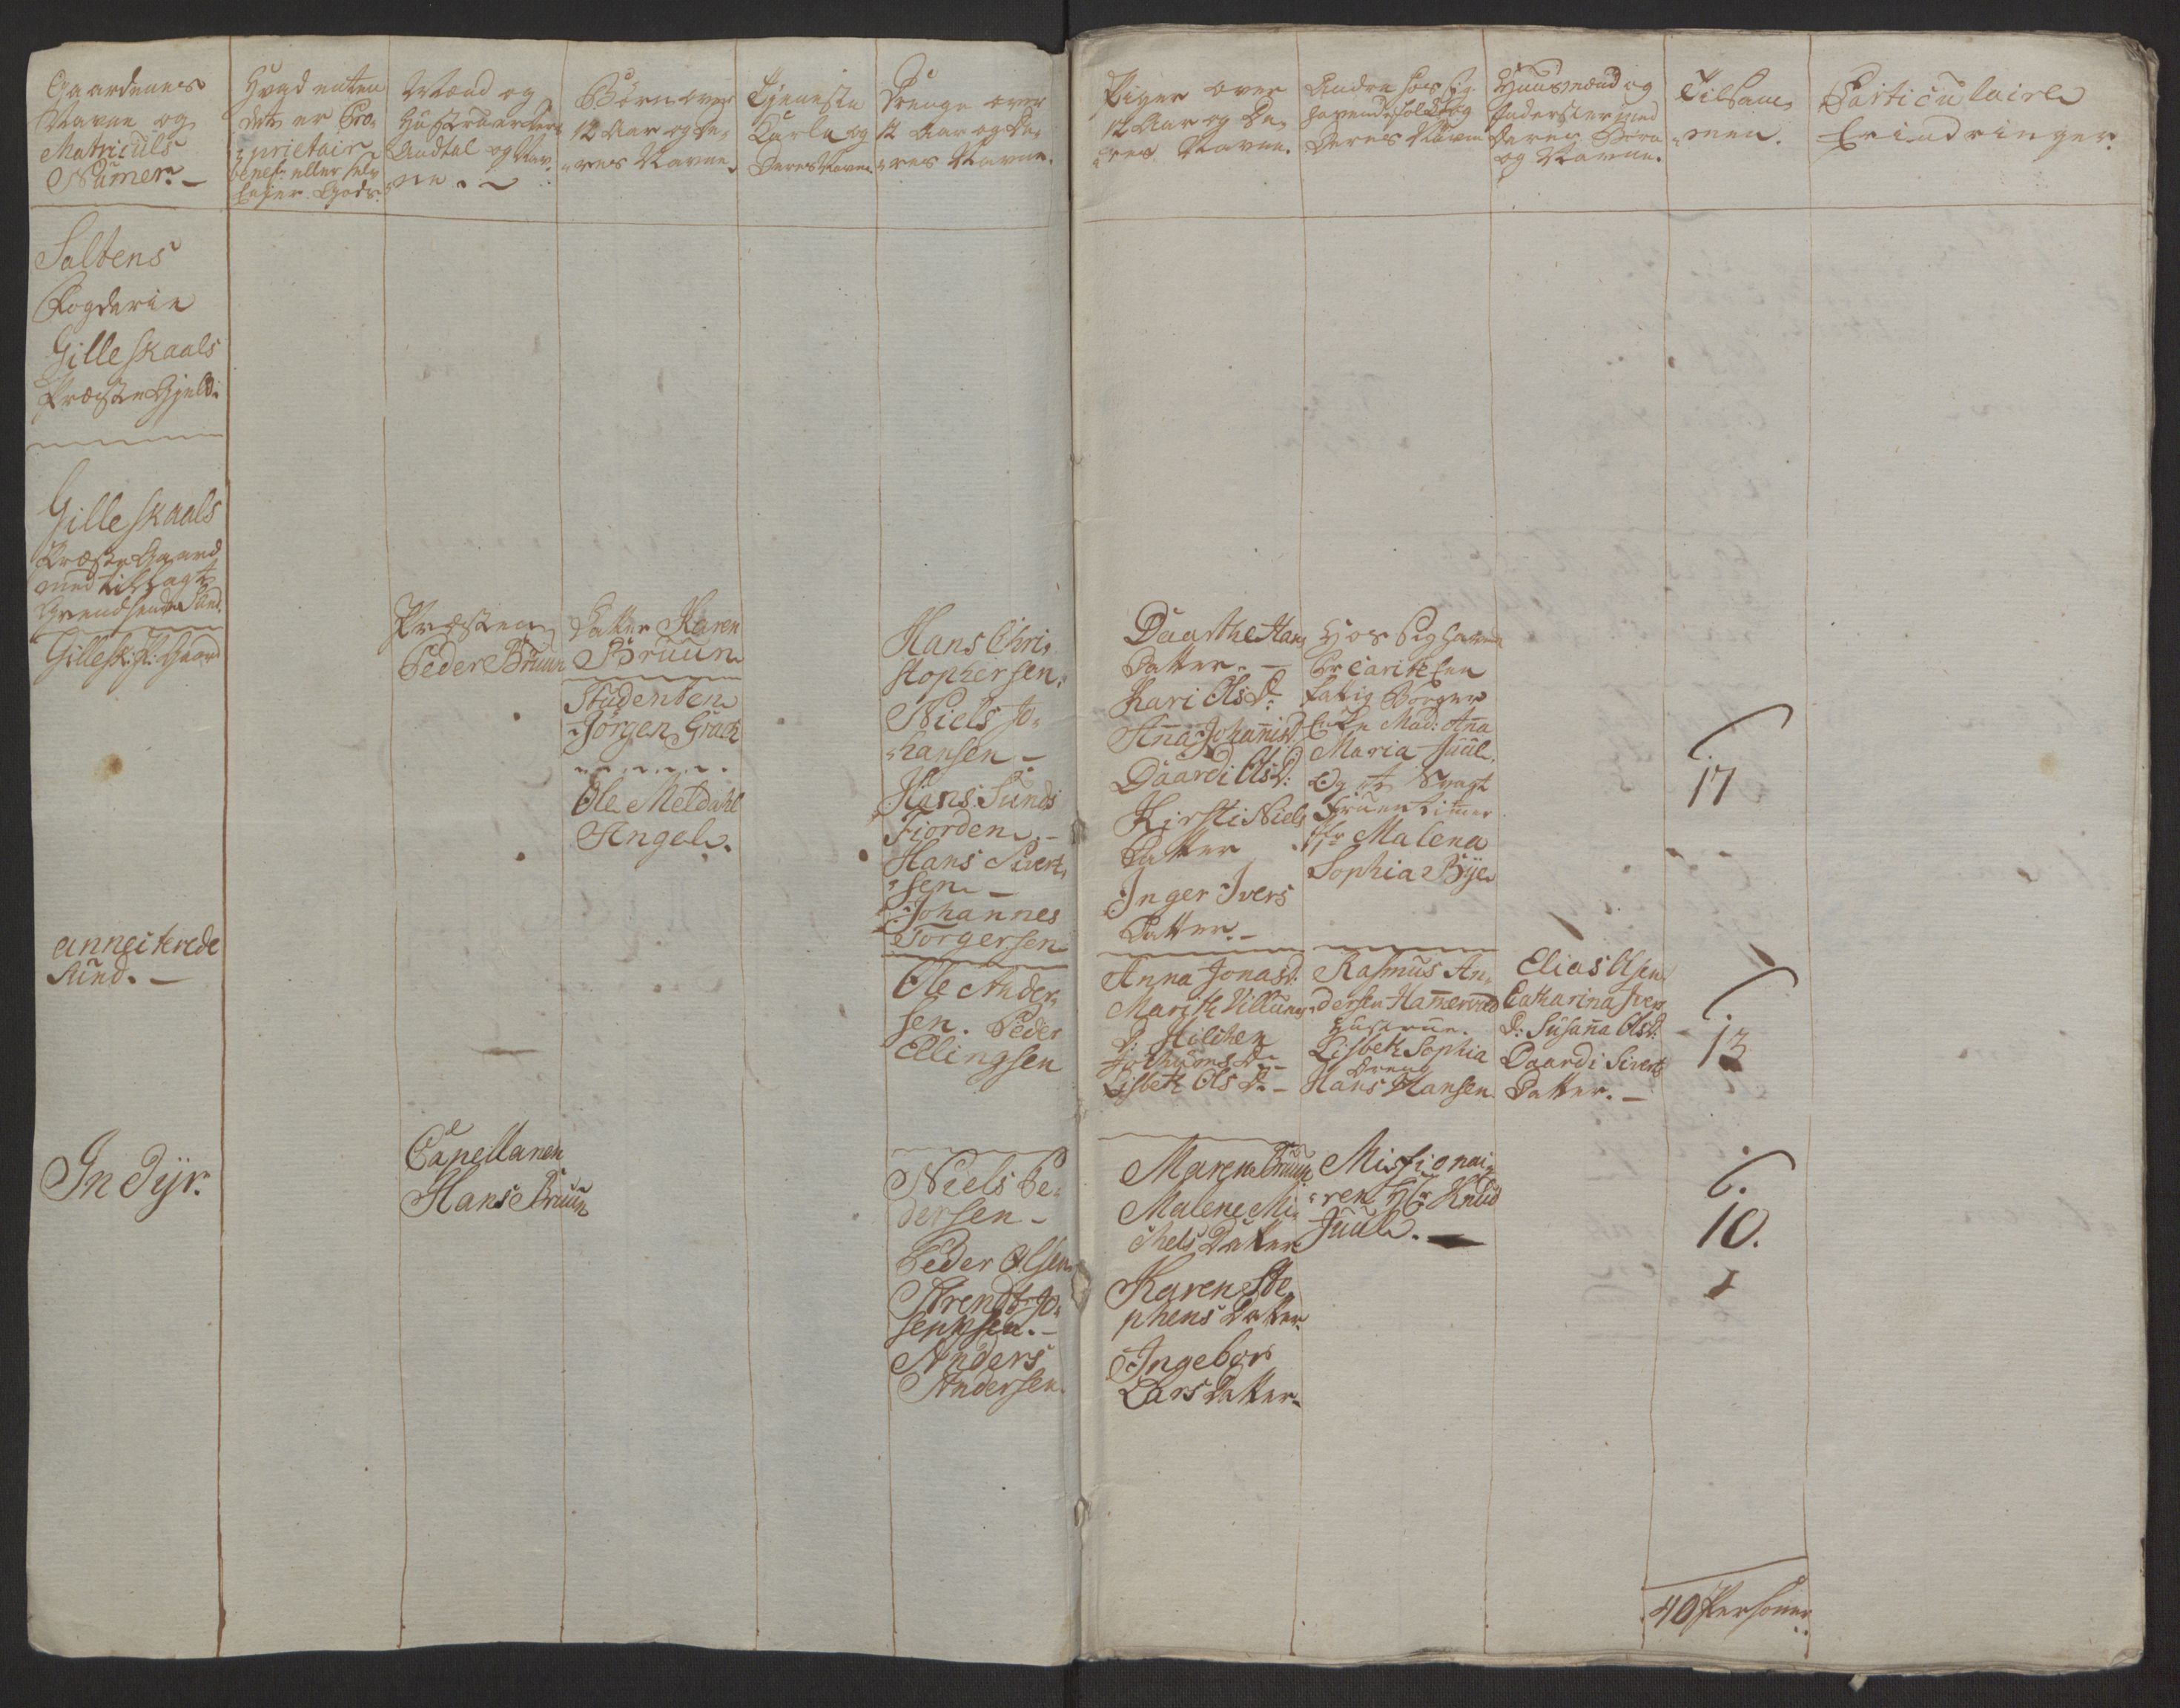 Gaardenes
Navne og
Matriculs
Numer. —
Hvad enten
det er Pro-
prietair
benef: eller selv
Eyer Gods.
Mænd og
Hustruer deres
Andtal og Nav-
ne. —
Børn over
12 Aar og de-
res Navne.
Tjeneste
Karle og
Deres Navne.
Drenge over
12 Aar og De-
res Navne.
Piger over
12 Aar og De-
res Navne.
Andre hos sig
havende folk og
Deres Navne
Huusmænd og
Inderster med
Deres Børn
og Navne.
Tilsam-
men.
Particulaire
Erindringer.
Saltens
Fogderie
Gilleskaals
Præste Gjeld.
Gilleskaals
Præste Gaard
med tillagt
Grendsende Sund.
Gillesk: P: Gaard
Præsten
Peder Bruun
Datter Karen
Bruun
Studenten
Jørgen Grack
Ole Meldahl
Angel.
Hans Chri-
stophersen.
Niels Jo-
hansen —
Hans Sunds
Fiorden. —
Hans Sivert-
sen —
Johannes
Torgersen
Daarthe Hans
Datter. —
Kari Ols D:
Anna Johannis D:
Daardi Ols D:
Kirsti Niels
Datter
Inger Ivers
Datter. —
Hos sig havende
for Caritk en
fattig Borger
Enke Mad: Anna
Maria Juul.
Og et Svagt
Fruentimer
Jfr Malena
Sophia Bye
17
anneckterede
Sund. —
Ole Ander-
sen. Peder
Ellingsen
Anna Jonas D:
Marith Villums
D: Hilichen
D: —
Lisbeth Ols D: —
Rasmus An-
dersen Hammervold
Hustrue.
Lisbeth Sophia
Dreng
Hans Hansen
Elias Olsen
Catharina Ivers
D: Susanna Ols D:
Daardi Siverts
Datter. —
13
Indyr.
Capellanen
Hans Bruun
Niels Pe-
dersen —
Peder Olsen
Arendt Jo-
sephsen. —
Anders
Andersen.
Maren Bruun
Malene Mi-
chels Datter
Karen Ste-
phens Datter
Ingebor
Lars Datter
Missionai-
ren Hr Knud
Juul. —
10.
40 Personer